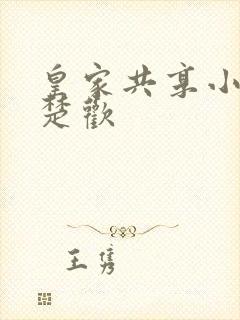 皇家共享小
楚歡
王隽